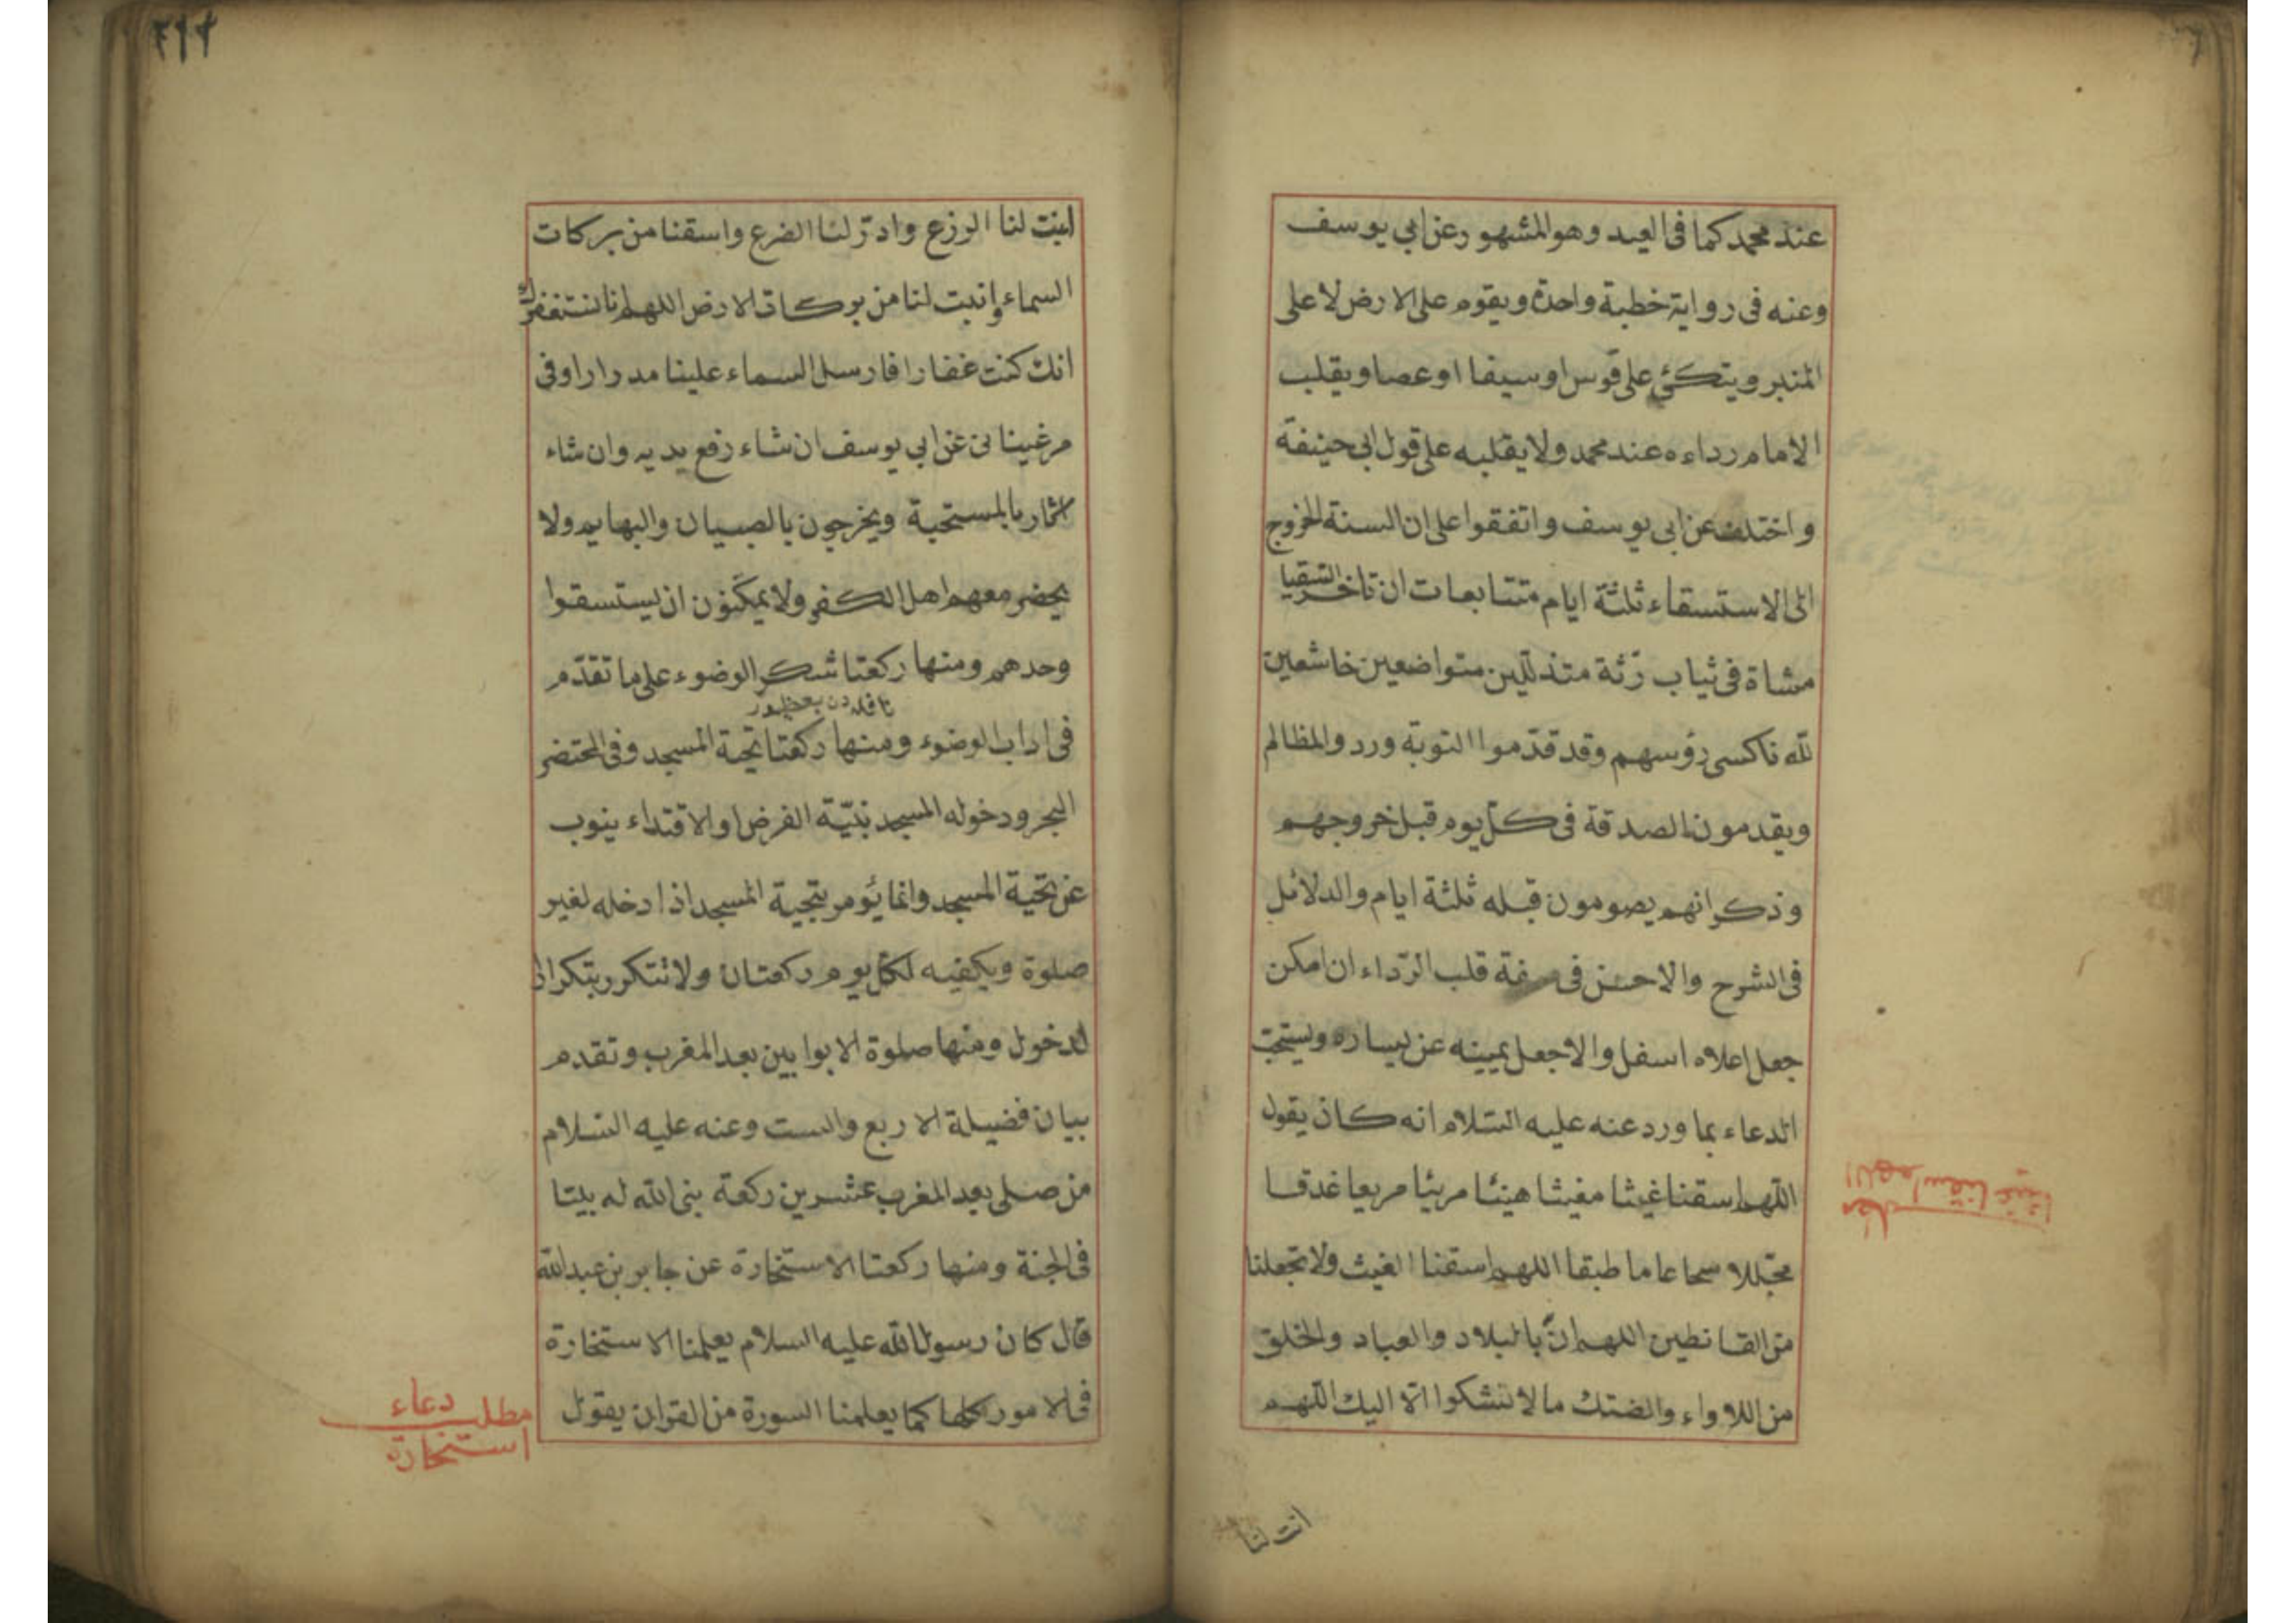 عند محمد كما فى العيد وهو المشهور عن ابي يوسف
وعنه فى رواية خطبة واحدة ويقوم على الارض لا على
المنبر ويتكئ على قوس او سيفا او عصا ويقلب
الامام رداءه عند محمد ولا يقلبه على قول ابى حنيفة
واختلف عن ابى يوسف واتفقوا على ان السنة الخروج
الى الاستسقاء ثلثة ايام متتابعات ان تاخر السقيا
مشاة فى ثياب رثة متذللين متواضعين خاشعين
لله ناكسى رؤسهم وقد قدموا التوبة ورد والمظالم
ويقدمون الصدقة فى كل يوم قبل خروجهم
وذكر انهم يصومون قبله ثلثة ايام والدلائل
فى الشرح والاحسن فى صفة قلب الرداء ان امكن
جعل اعلاه اسفل والا جعل يمينه عن يساره ويستحب
الدعاء بما ورد عنه عليه السلام انه كان يقول
اللهم اسقنا غيثا مغيثا هنيئا مريئا مريعا غدقا
مجللا سحا عاما طبقا اللهم اسقنا الغيث ولا تجعلنا
من القانطين اللهم ان بالبلاد والعباد والخلق
من اللاواء والضنك ما لا نشكوا الا اليك اللهم
انبت لنا
مطلب اللهم اسقنا غيثا
٢١٢
انبت لنا الزرع وادر لنا الضرع واسقنا من بركات
السماء وانبت لنا من بركات الارض اللهم انا نستغفرك
انك كنت غفارا فارسل السماء علينا مدرارا وفى
مرغينانى عن ابي يوسف ان شاء رفع يديه وان شاء
اشار بالمستحبة ويخرجون بالصبيان والبهايم ولا
يحضر معهم اهل الكفر ولا يمكنون ان يستسقوا
وحدهم ومنها ركعتا شكر الوضوء على ما تقدم
فى اداب الوضوء ومنها ركعتا تحية المسجد وفى المختصر
البحر ودخوله المسجد بنية الفرض او الاقتداء ينوب
عن تحية المسجد وانما يؤمر بتحية المسجد اذا دخله لغير
صلوة ويكفيه لكل يوم ركعتان ولا تتكرر بتكرار
الدخول ومنها صلوة الاوابين بعد المغرب وتقدم
بيان فضيلة الاربع والست وعنه عليه السلام
من صلى بعد المغرب عشرين ركعة بنى الله له بيتا
فى الجنة ومنها ركعتا الاستخارة عن جابر بن عبد الله
قال كان رسول الله عليه السلام يعلمنا الاستخارة
فى الامور كلها كما يعلمنا السورة من القران يقول
مطلب دعاء
استخارة